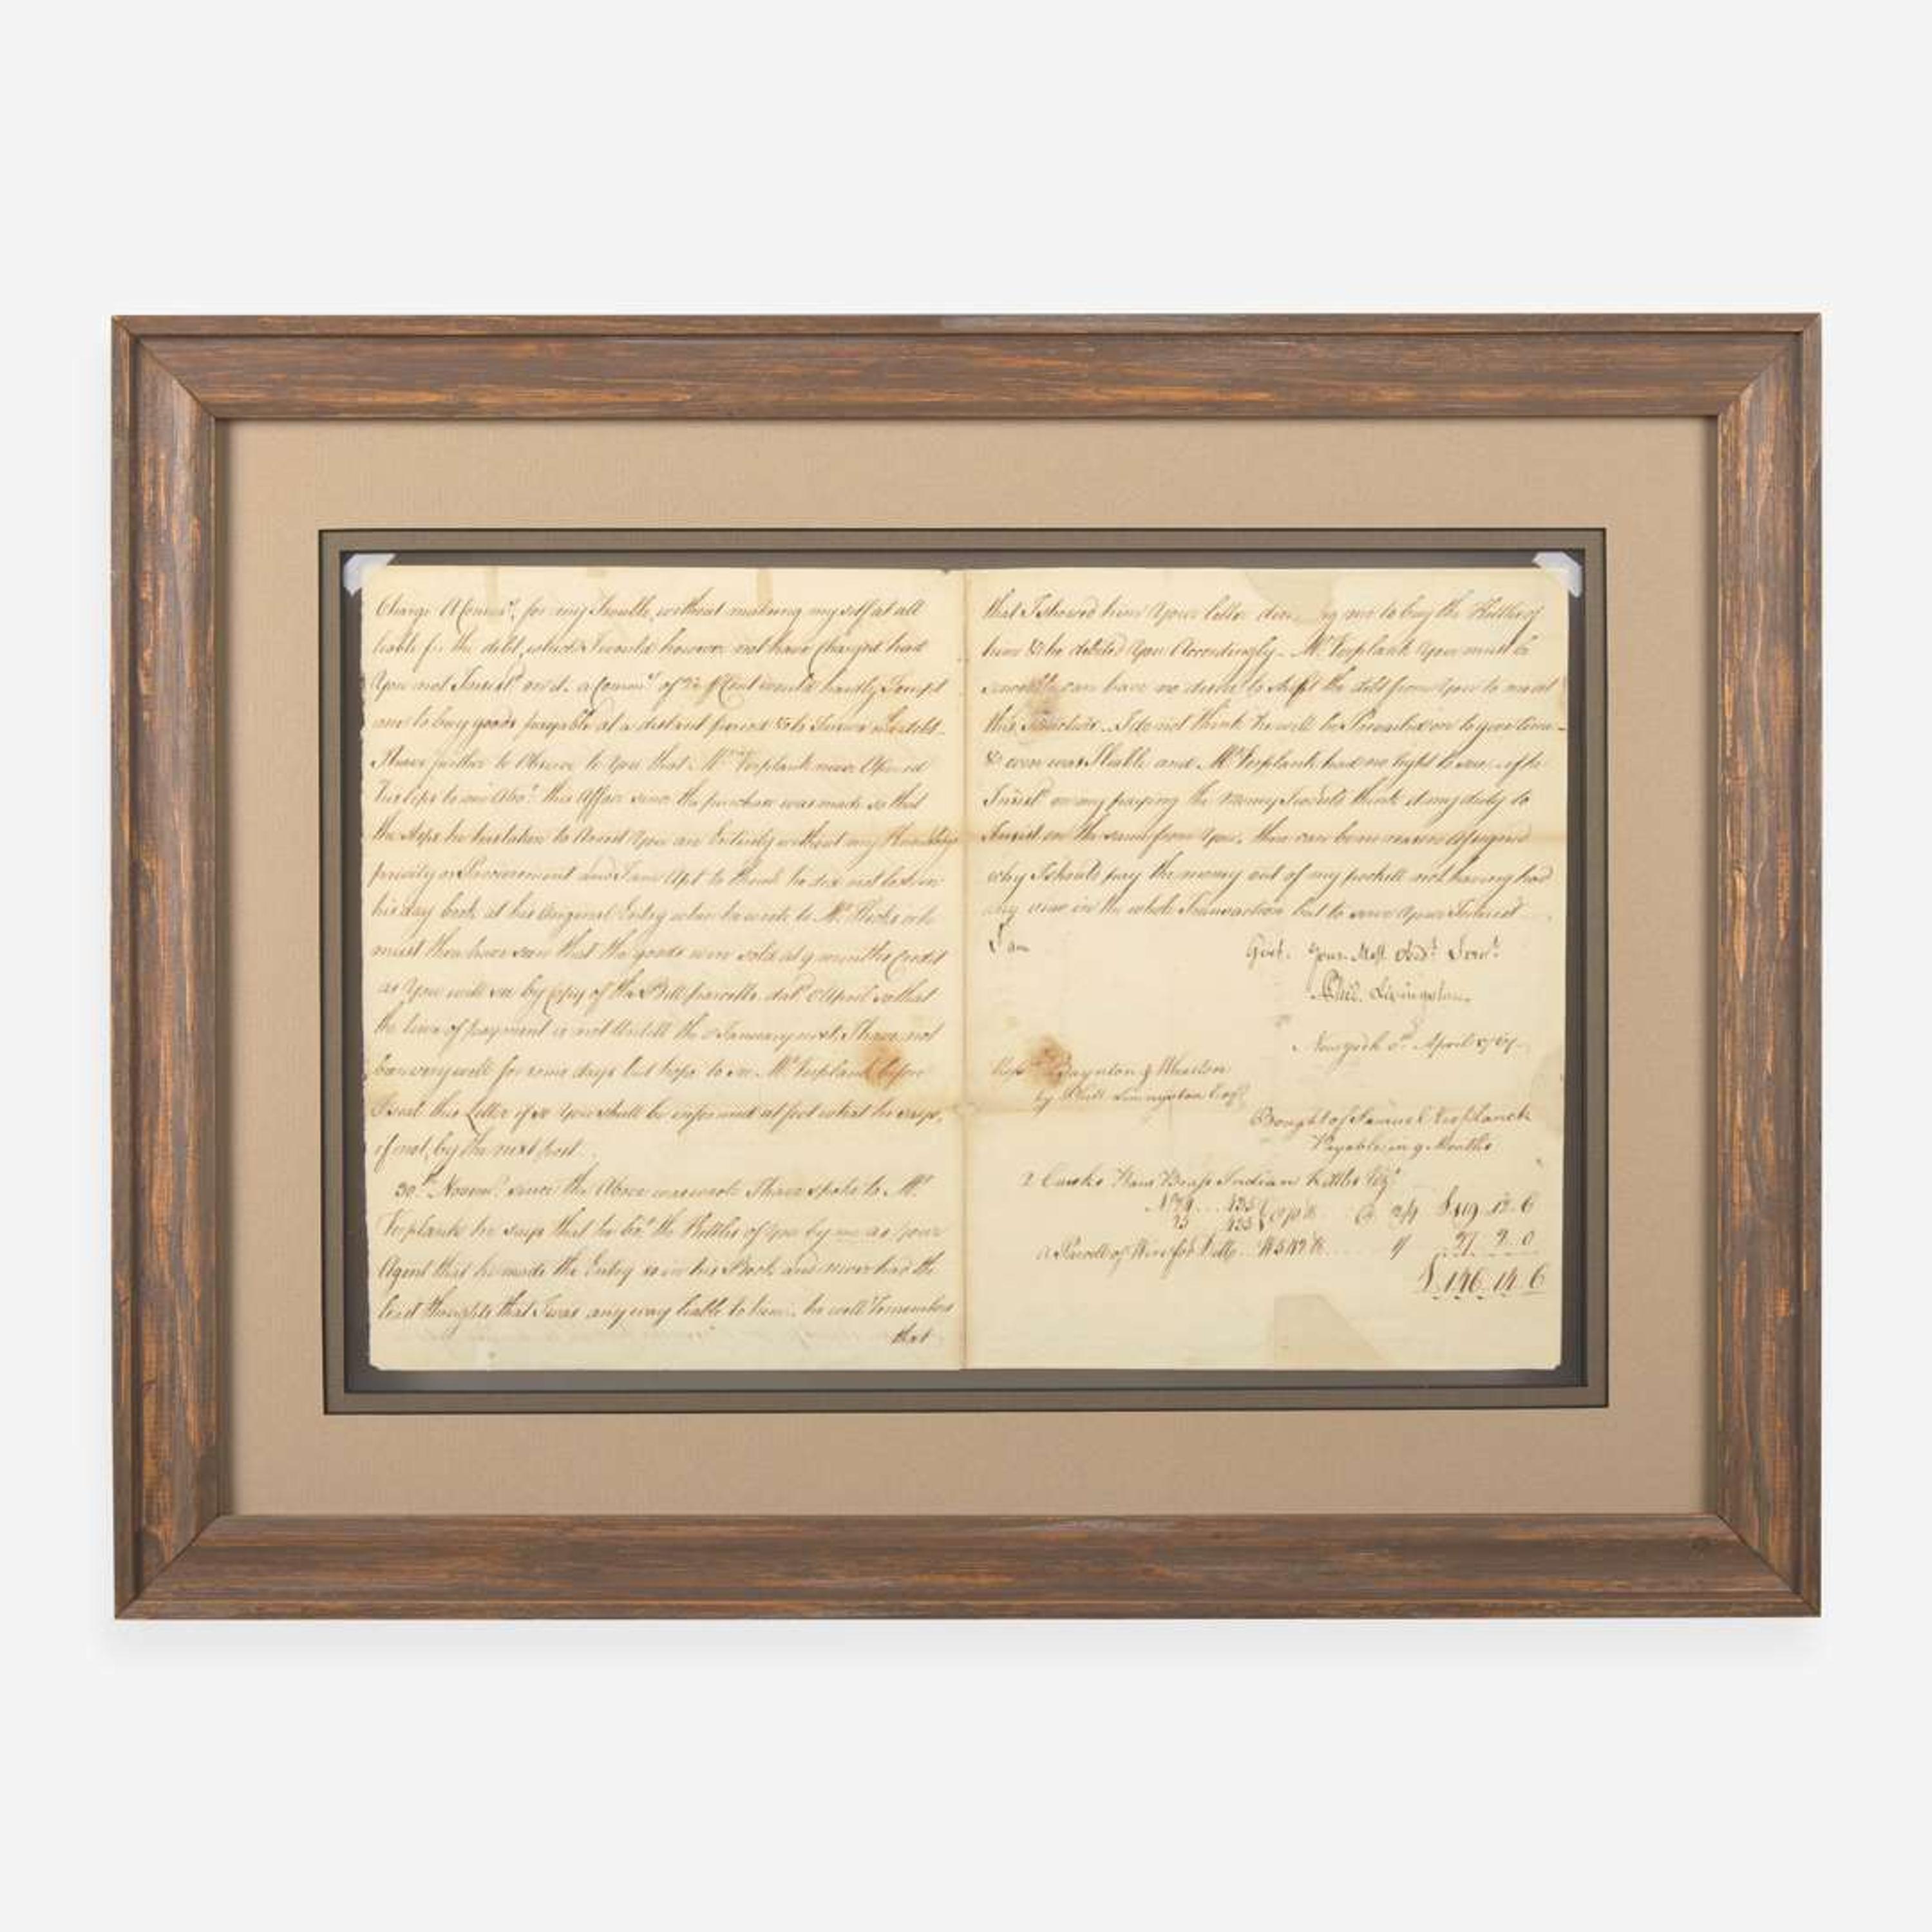 Charge A Commisn. for my Trouble, without making my self at all
liable for the debt, which I would however not have Charged had
You not Insist'd on it. a Comm'n of 2½ P Cent would hardly Tempt
me to buy goods payable at a distant period & to Insure the debt.
I have further to Observe to You that Mr Verplank never Opened
his lips to me Abo't this Affair since the purchase was made so that
the steps he has taken to Arrest You are Entirely without my Knowledge
privity or Procurement and I am Apt to think he did not look in
his day book at his Original Entry when he wrote to Mr. Hicks who
must then have seen that the goods were sold at 9 months Credit
as You will see by Copy of the Bill herewith dat'd April so that
the time of payment is not Untill the January next, I have not
been very well for some days but hope to see Mr Verplank before
I seal this Letter if so You shall be informed at foot what he says,
if not, by the next post.
30th Novemr. since the Above was wrote I have spoke to Mr
Verplank he says that he the Kettles of you by me as Your
Agent that he made the Entry so in his Book and never had the
least thoughts that I was any way liable to him. he well Remembers
that
that I showed him Your letter me to buy the Kettles of
him & he debited You Accordingly. Mr. Verplank You must be
sensible can have no desire to shift the debt from You to me at
this Juncture. I do not think he will be Prevailed on to give time
& even was I liable and Mr Verplank had no Right to sue, if he
Insist'd on my paying the Money I should think it my duty to
Insist on the same from You. there can be no reason Assigned
why I should pay the money out of my pockett not having had
any view in the whole Transaction but to serve Your Interest
I am
Gent. Your Most Obedt. Servt.
Phil. Livingston.
New York April 1767.
Messrs Baynton & Wharton
by Phill Livingston Esqr.
Bought of Samuel Verplanck
Payable in 9 Months
2 Casks Brass Indian Kettles
@ 2/4 £119..12..6
a Parcell of Wire for Ditto 27..2..0
£146..14..6